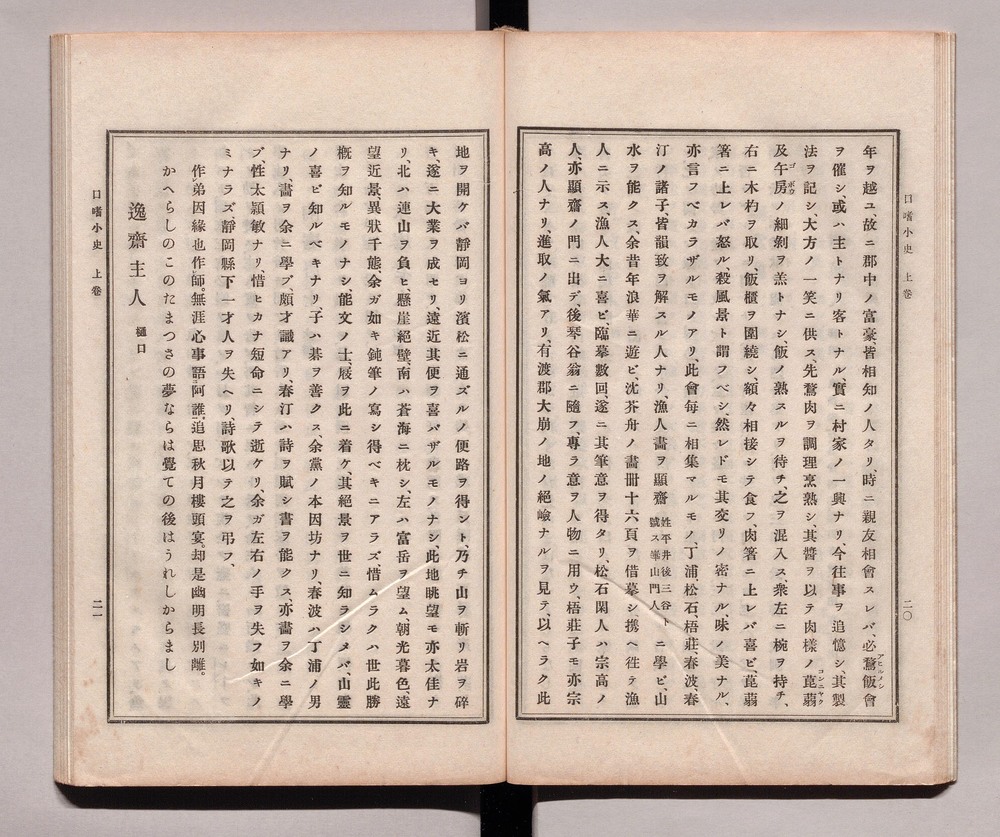 口嗜小史 上卷
二〇
年ヲ越ユ、故ニ郡中ノ富豪皆相知ノ人タリ、時ニ親友相會スレバ、必鶩飯會
アヒルメシ
ヲ催シ、或ハ主トナリ客トナル、實ニ村家ノ一興ナリ、今往事ヲ追憶シ、其製
法ヲ記シ、大方ノ一笑ニ供ス、先鶩肉ヲ調理烹熟シ、其醬ヲ以テ肉樣ノ菎蒻
コンニヤク
及午房ノ細剝ヲ羹トナシ、飯ノ熟スルヲ待チ、之ヲ混入ス、衆左ニ椀ヲ持チ、
ゴボウ
右ニ木杓ヲ取リ、飯櫃ヲ圍繞シ、額々相接シテ食フ、肉箸ニ上レバ喜ビ、菎蒻
箸ニ上レバ怒ル、殺風景ト謂フベシ、然レドモ其交リノ密ナル、味ノ美ナル、
亦言フベカラザルモノアリ、此會毎ニ相集マルモノ、丁浦松石梧莊、春波、春
汀ノ諸子、皆韻致ヲ解スル人ナリ、漁人畵ヲ顯齋 姓平井後三谷ト號ス峯山門人 ニ學ビ、山
水ヲ能クス、余昔年浪華ニ遊ビ、沈芥舟ノ畵冊十六頁ヲ借摹シ、携ヘ徃テ漁
人ニ示ス、漁人大ニ喜ビ、臨摹數回、遂ニ其筆意ヲ得タリ、松石閑人ハ宗高ノ
人、亦顯齋ノ門ニ出デ、後琴谷翁ニ隨フ、專ラ意ヲ人物ニ用ウ、梧莊子モ亦宗
高ノ人ナリ、進取ノ氣アリ、有渡郡大崩ノ地ノ絕嶮ナルヲ見テ、以ヘラク此
地ヲ開ケバ靜岡ヨリ濱松ニ通ズルノ便路ヲ得ント、乃チ山ヲ斬リ岩ヲ碎
キ、遂ニ大業ヲ成セリ、遠近其便ヲ喜バザルモノナシ、此地眺望モ亦太佳ナ
リ、北ハ連山ヲ負ヒ、懸崖絕壁、南ハ蒼海ニ枕シ、左ハ富岳ヲ望ム、朝光暮色、遠
望近景、異狀千態、余ガ如キ鈍筆ノ寫シ得ベキニアラズ、惜ムラクハ世此勝
槪ヲ知ルモノナシ、能文ノ士、屐ヲ此ニ着ケ、其絕景ヲ世ニ知ラシメバ、山靈
ノ喜ビ知ルベキナリ、子ハ碁ヲ善クス、余黨ノ本因坊ナリ、春波ハ丁浦ノ男
ナリ、畵ヲ余ニ學ブ、頗才識アリ、春汀ハ詩ヲ賦シ書ヲ能クス、亦畵ヲ余ニ學
ブ、性太穎敏ナリ、惜ヒカナ短命ニシテ逝ケリ、余ガ左右ノ手ヲ失フ如キノ
ミナラズ、靜岡縣下一才人ヲ失ヘリ、詩歌以テ之ヲ弔フ、
作弟因緣也作師。無涯心事語阿誰。追思秋月樓頭宴。却是幽明長別離。
かへらしのこのたまつさの夢ならは覺ての後はうれしからまし
逸齋主人 樋口
口嗜小史 上卷
二一